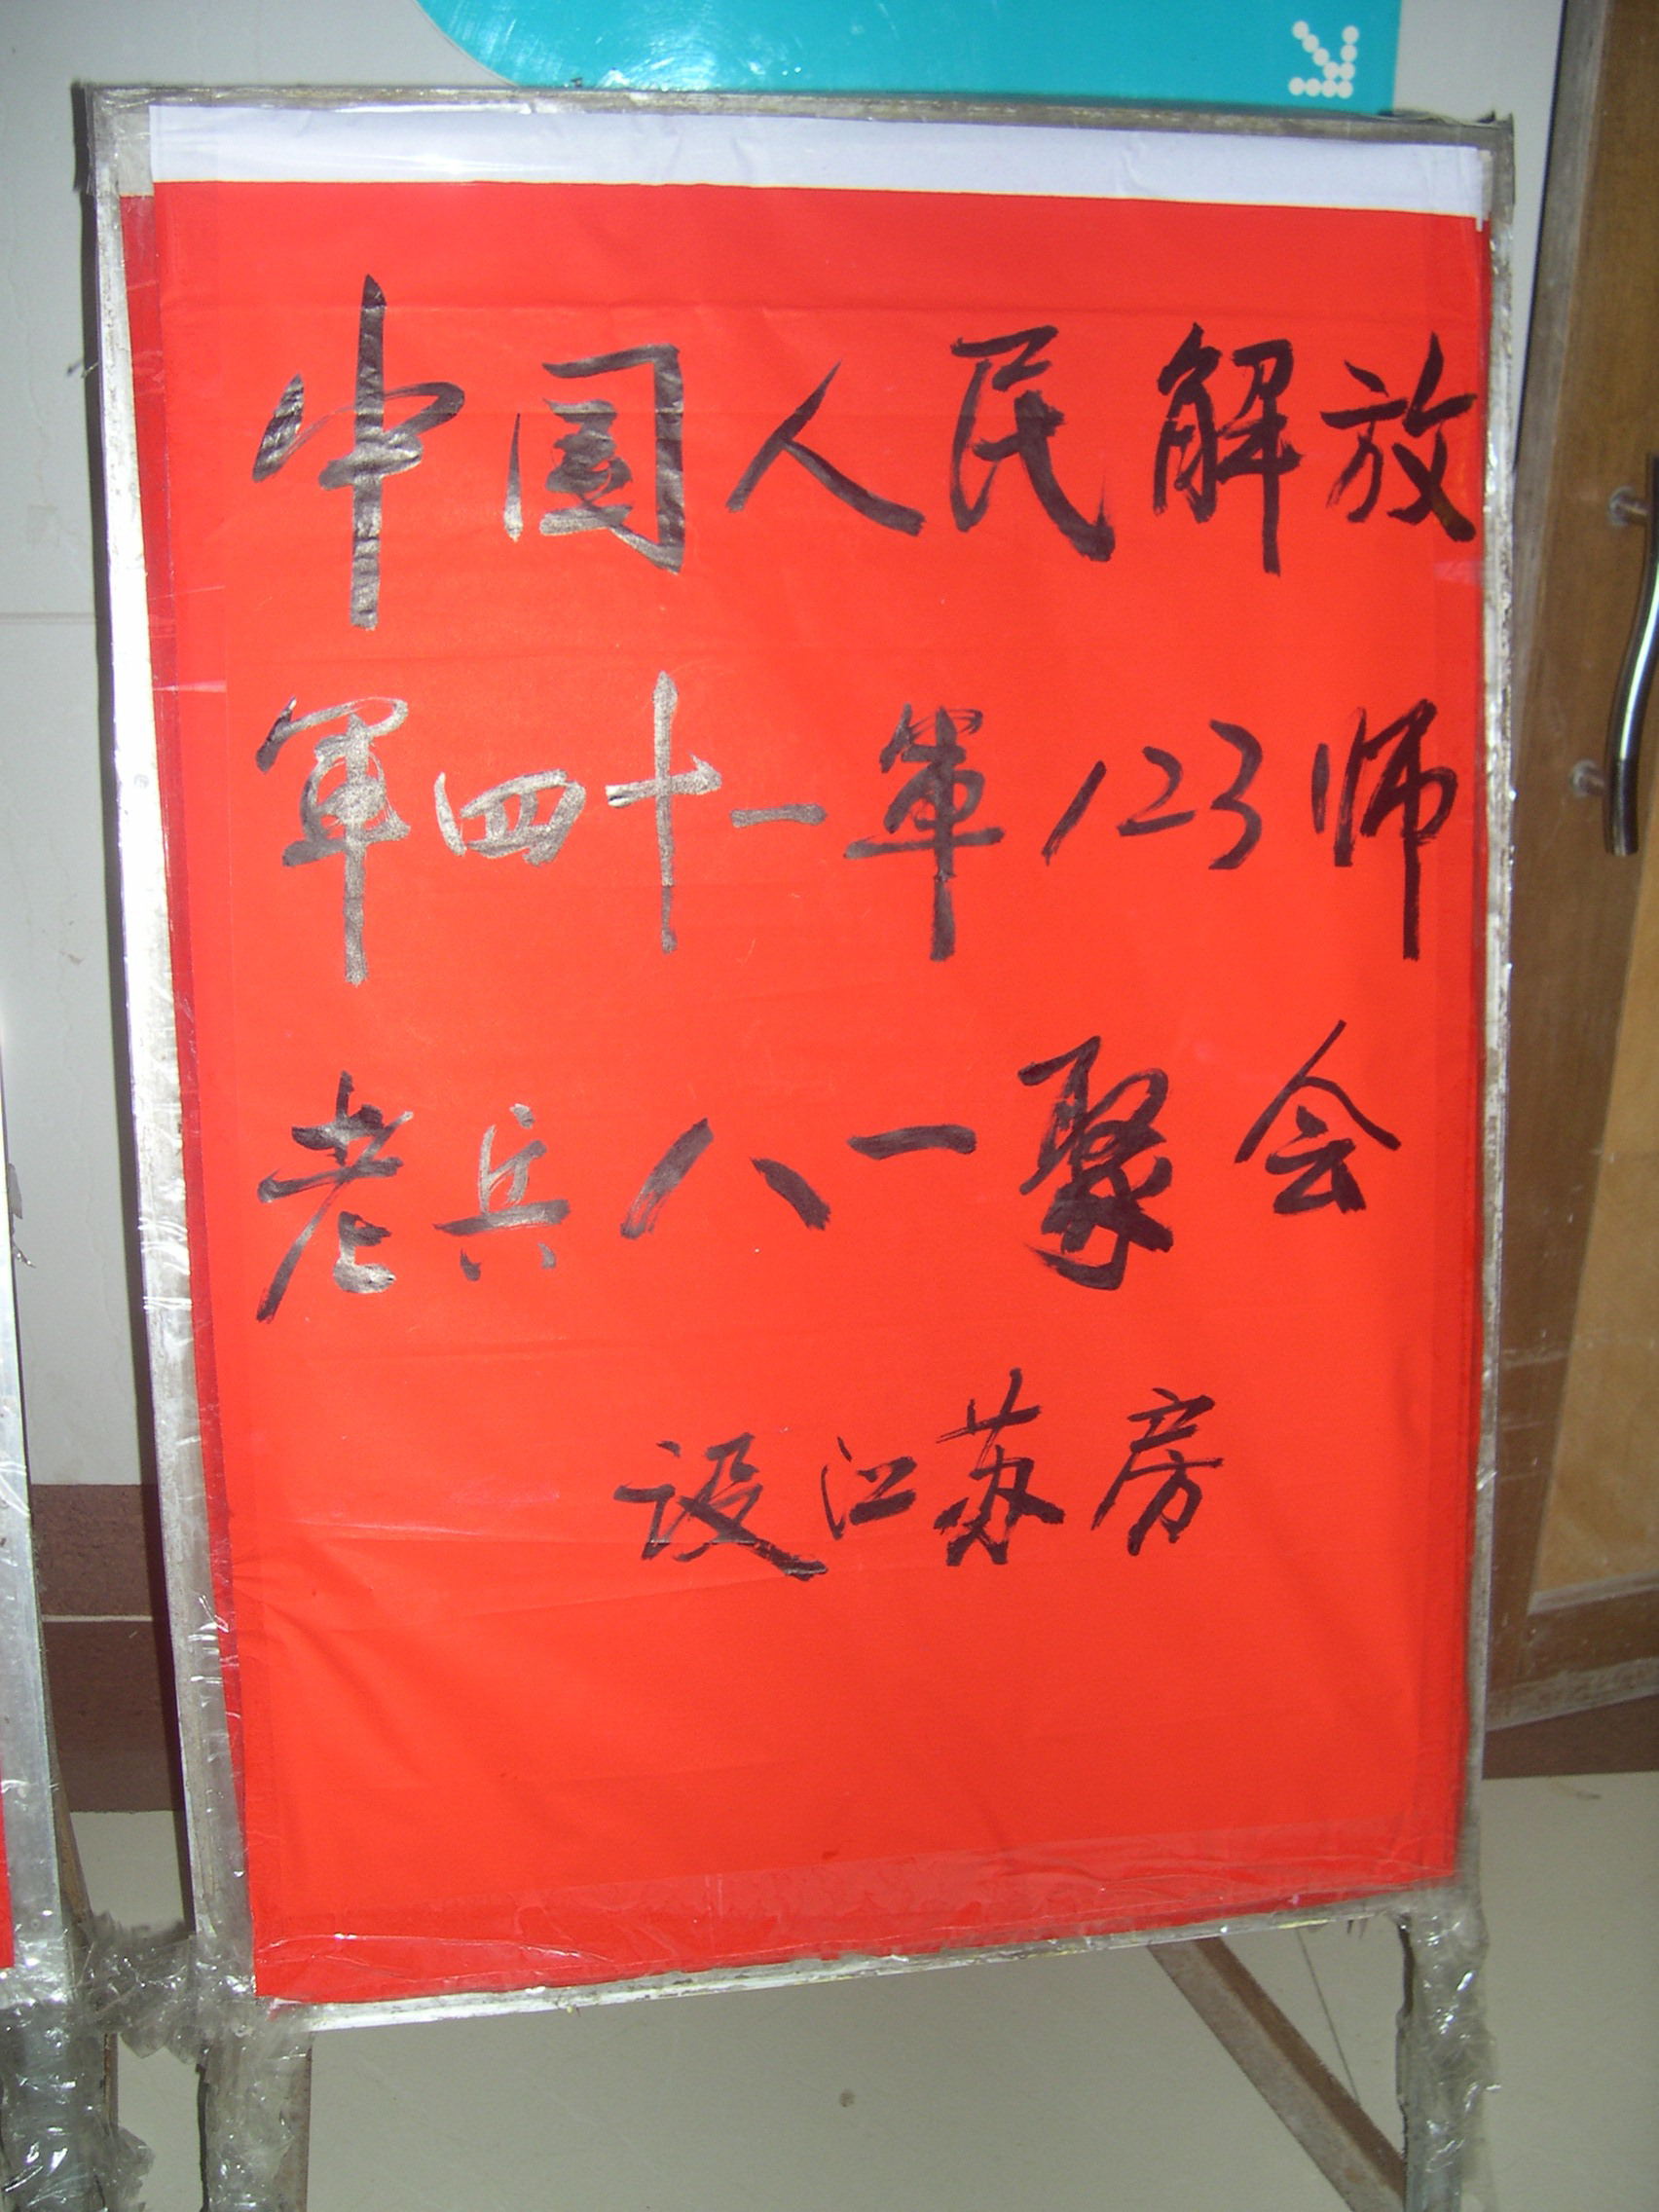 中国人民解放
軍四十一軍123师
老兵八一聚会
设江苏房